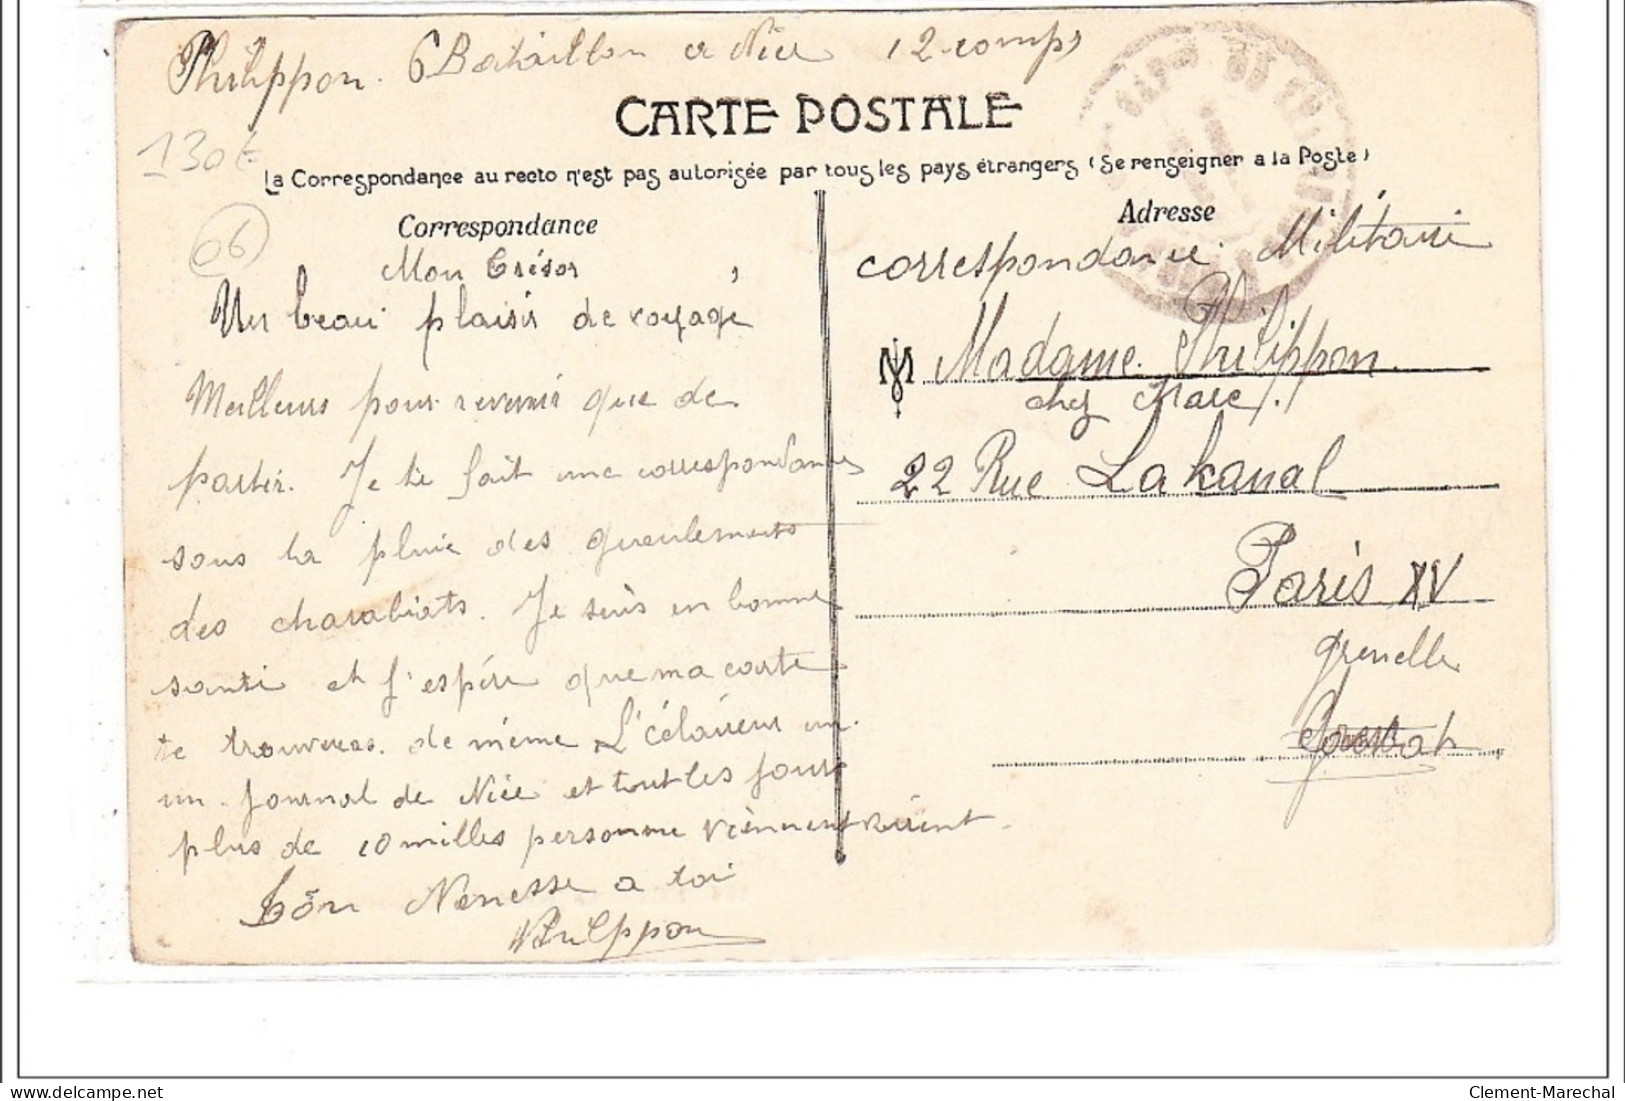 Philippon. 6 Bataillon a Nice 12 comps
CARTE POSTALE
130€
La Correspondance au recto n'est pas autorisée par tous les pays étrangers (Se renseigner a la Poste)
06
Correspondance
Mon Trésor,
Un beau plaisir de voyage
Meilleurs pour revenir que de
partir. Je te fait une correspondances
sous la pluie des gueulements
des charabiats. Je suis en bonne
santé et j'espère que ma carte
te trouveras de même L'éclaireur un
un journal de Nice et tout les jours
plus de 10 milles personne viennent
Ton Nenesse a toi
Philippon
Adresse
correspondance Militaire
M Madame Philippon
chez
22 Rue Lakanal
Paris XV
grenelle
Clement-Marechal